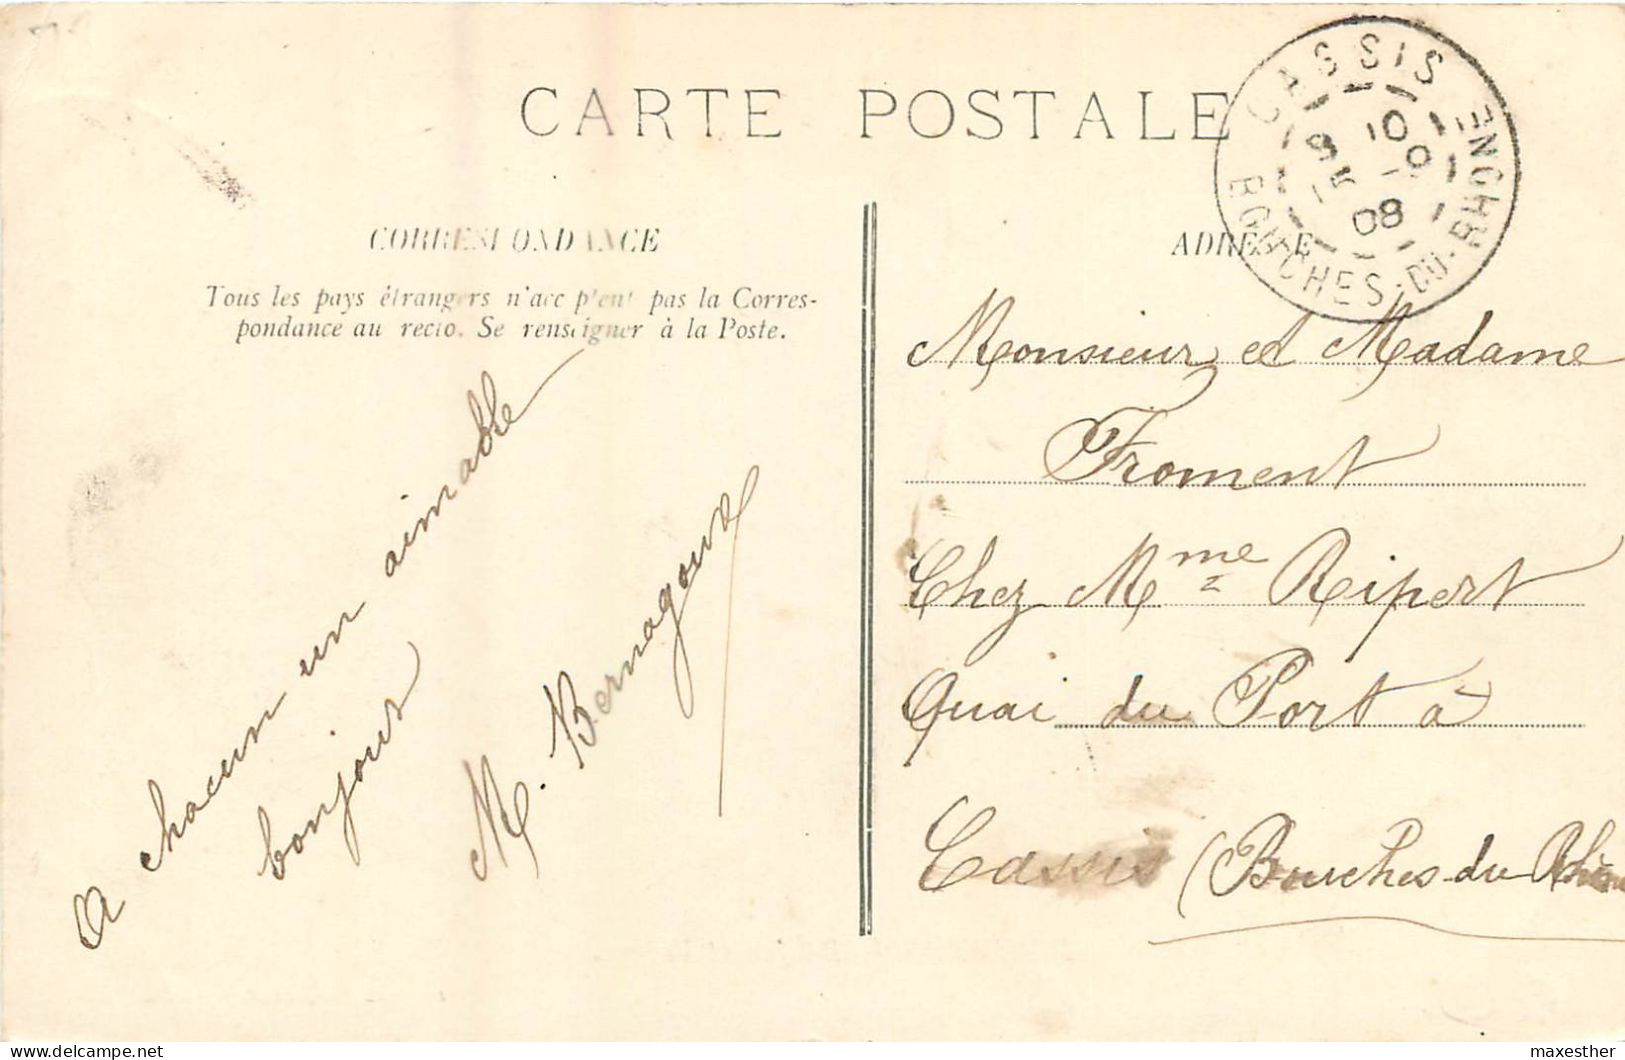 CARTE POSTALE
CORRESPONDANCE
Tous les pays étrangers n'acceptent pas la Corres-
pondance au recto. Se renseigner à la Poste.
A chacun un aimable
bonjour
M. Bernagoud
CASSIS
10
9
08
BOUCHES-DU-RHONE
ADRESSE
Monsieur et Madame
Froment
Chez Mme Ripert
Quai du Port à
Cassis (Bouches du Rhône
maxesther